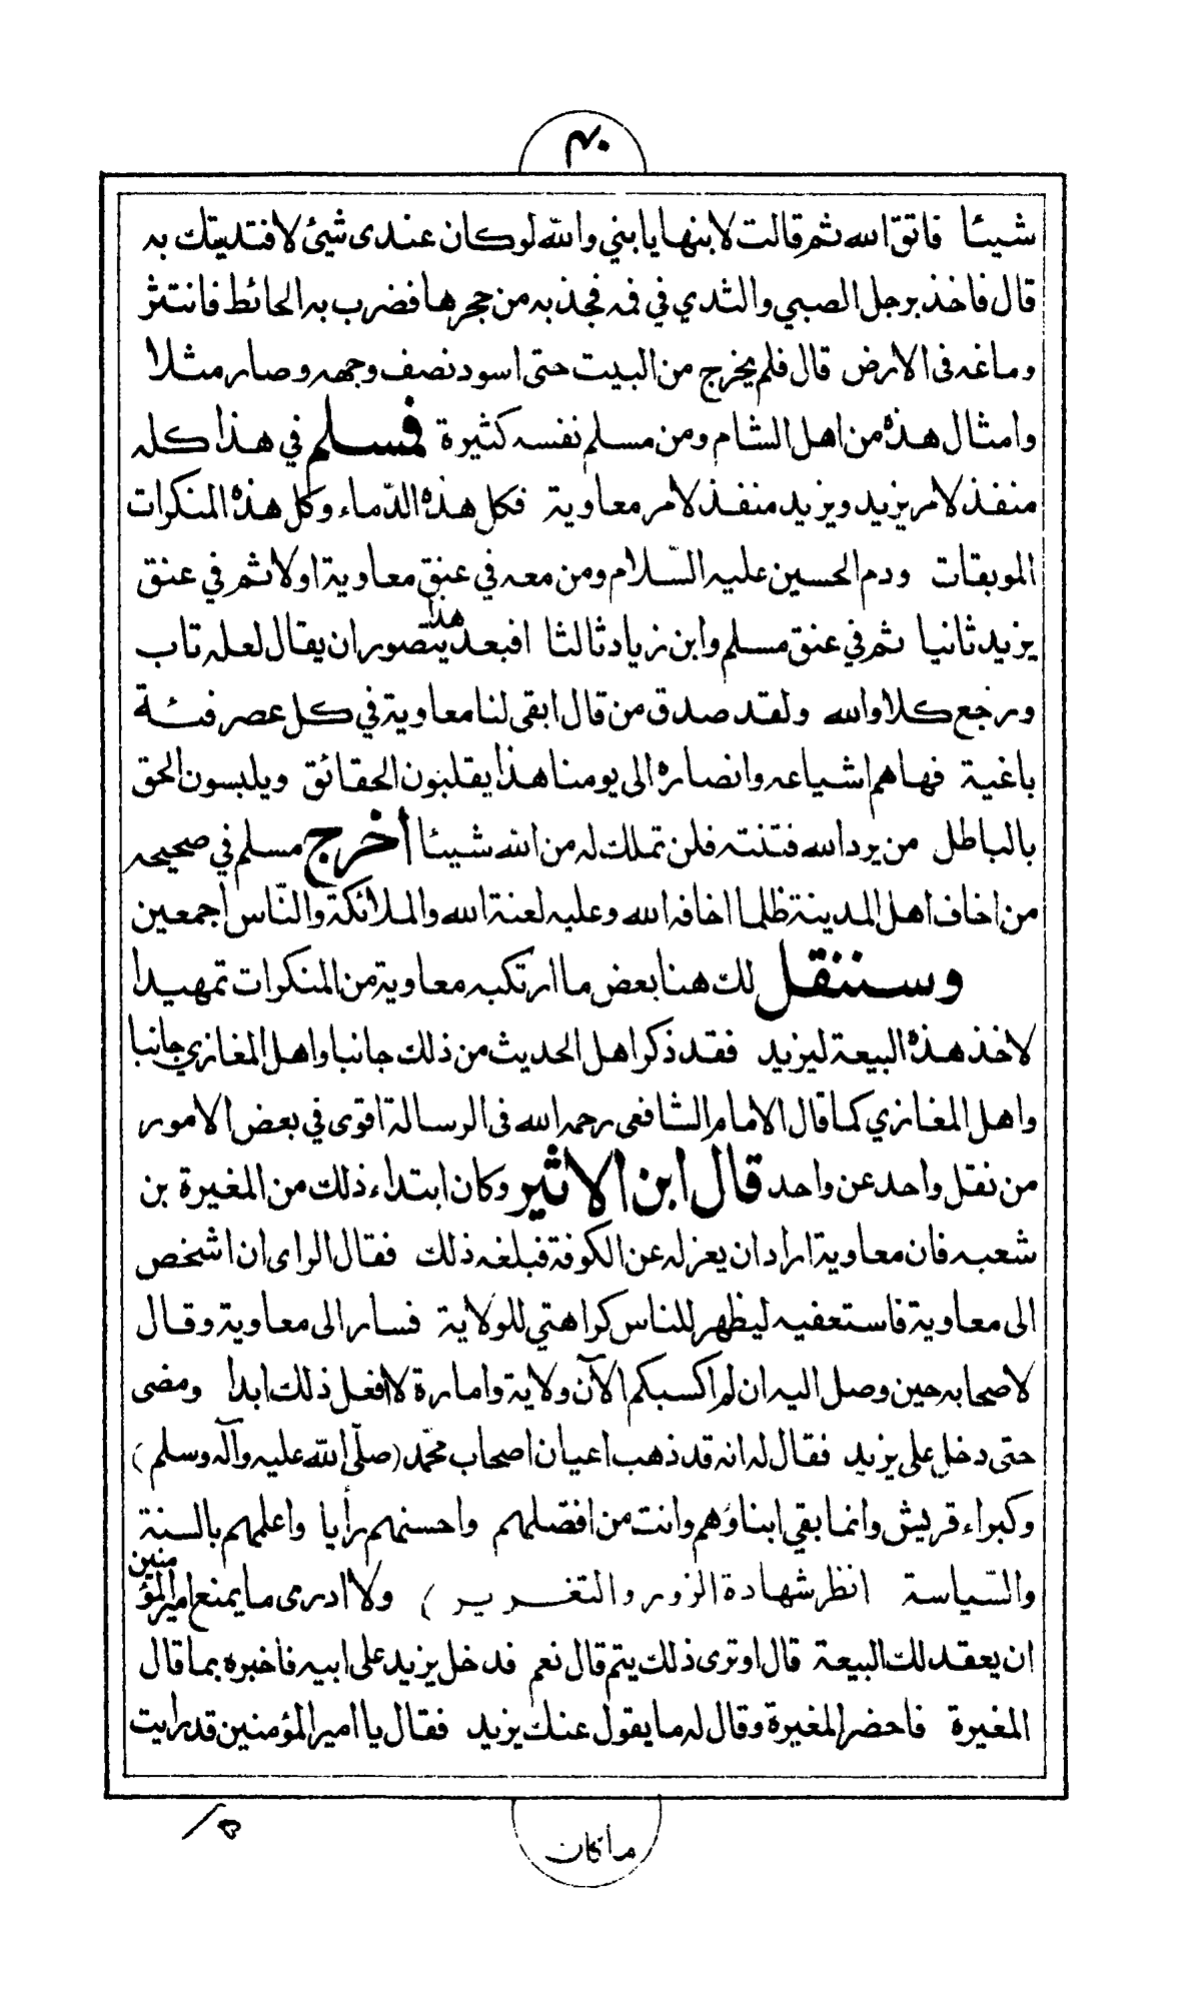 ٤٠
شيئا فاتق الله ثم قالت لابنها يا بني والله لوكان عندى شيئ لافتديتك به
قال فاخذ برجل الصبي والثدي في فمه فجذبه من حجرها فضرب به الحائط فانتثر
دماغه فى الارض قال فلم يخرج من البيت حتى اسود نصف وجهه وصار مثلا
وامثال هذه من اهل الشام ومن مسلم نفسه كثيرة فمسلم في هذا كله
منفذ لامر يزيد ويزيد منفذ لامر معاوية فكل هذه الدّماء وكل هذه المنكرات
الموبقات ودم الحسين عليه السّلام ومن معه في عنق معاوية اولا ثم في عنق
يزيد ثانيا ثم في عنق مسلم وابن زياد ثالثا افبعد هذا يتصور ان يقال لعله تاب
ورجع كلا والله ولقد صدق من قال ابقى لنا معاوية في كل عصر فئة
باغية فهاهم اشياعه وانصاره الى يومنا هذا يقلبون الحقائق ويلبسون الحق
بالباطل من يرد الله فتنته فلن تملك له من الله شيئا أخرج مسلم في صحيحه
من اخاف اهل المدينة ظلما اخافه الله وعليه لعنة الله والملائكة والنّاس اجمعين
وسننقل لك هنا بعض ما ارتكبه معاوية من المنكرات تمهيدا
لاخذ هذه البيعة ليزيد فقد ذكر اهل الحديث من ذلك جانبا واهل المغازي جانبا
واهل المغازي كما قال الامام الشافعى رحمه الله فى الرسالة اقوى في بعض الامور
من نقل واحد عن واحد قال ابن الاثير وكان ابتداء ذلك من المغيرة بن
شعبه فان معاوية اراد ان يعزله عن الكوفة فبلغه ذلك فقال الراى ان اشخص
الى معاوية فاستعفيه ليظهر للناس كراهتي للولاية فسار الى معاوية وقال
لاصحابه حين وصل اليه ان لم اكسبكم الآن ولاية وامارة لا افعل ذلك ابدا ومضى
حتى دخل على يزيد فقال له انه قد ذهب اعيان اصحاب محمّد (صلّى الله عليه وآله وسلم)
وكبراء قريش وانما بقي ابناؤهم وانت من افضلهم واحسنهم رأيا واعلمهم بالسنة
والسّياسة انظر شهادة الزور والتغرير) ولا ادرى ما يمنع امير المؤمنين
ان يعقد لك البيعة قال اوترى ذلك يتم قال نعم فدخل يزيد على ابيه فاخبره بما قال
المغيرة فاحضر المغيرة وقال له ما يقول عنك يزيد فقال يا امير المؤمنين قد رايت
ما كان
٥/